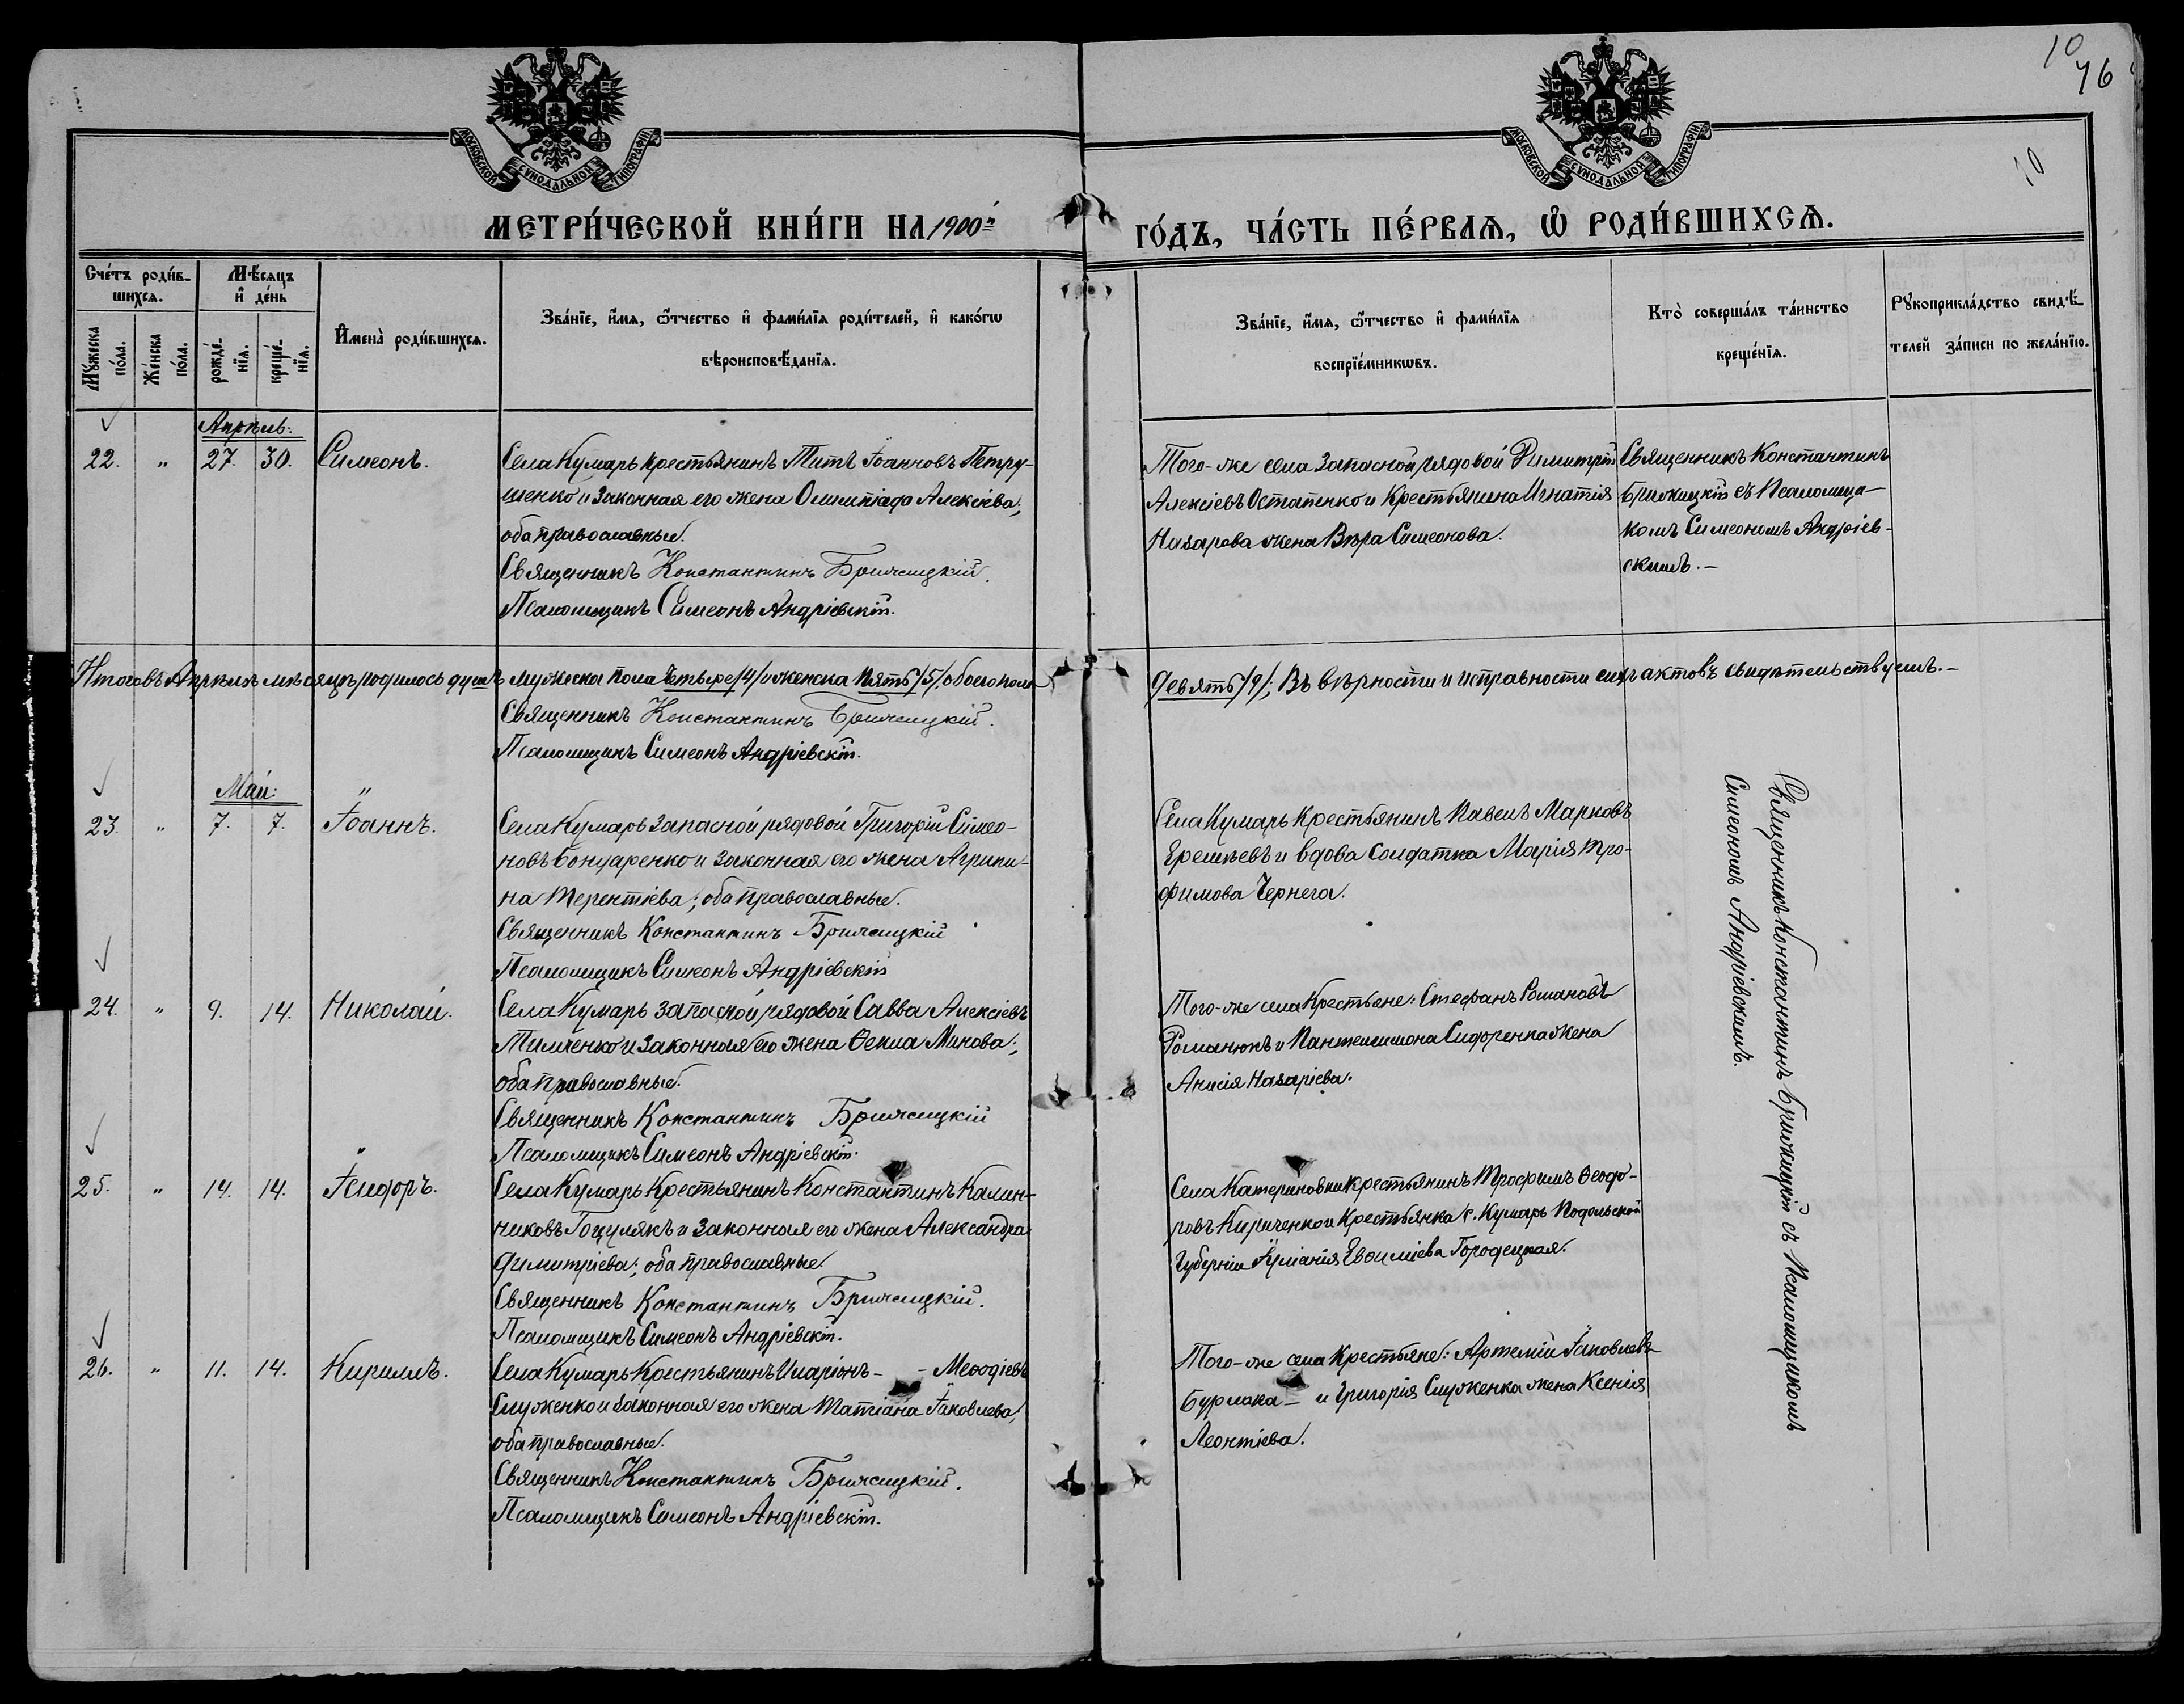 10
46
10
МОСКОВСКОЙ СУНОДАЛЬНОЙ ТИПОГРАФІИ
МОСКОВСКОЙ СУНОДАЛЬНОЙ ТИПОГРАФІИ
МЕТРИ́ЧЕСКОЙ КНИ́ГИ НА 1900й
ГО́ДЪ, ЧА́СТЬ ПЕ́РВАѦ, Ѡ РОДИ́ВШИХСѦ.
Сче́тъ роди́в-
шихсѧ.
Мѣ́сѧцъ
и҆ де́нь
Мꙋ́жеска
по́ла.
Же́нска
по́ла.
рожде́-
нїѧ.
креще́-
нїѧ.
И҆мена̀ роди́вшихсѧ.
Зва́нїе, и҆́мѧ, ѻ҆́тчество и҆ фами́лїѧ роди́телей, и҆ како́гѡ
вѣроисповѣ́данїѧ.
Зва́нїе, и҆́мѧ, ѻ҆́тчество и҆ фами́лїѧ
воспрїе́мникѡвъ.
Кто̀ соверша́лъ та́инство
креще́нїѧ.
Рꙋкоприкла́дство свидѣ́-
телей за́писи по жела́нїю.
Апрѣль:
22. " 27. 30. Симеонъ.
Села Кумарь крестьянинъ Титъ Іоанновъ Петру-
шенко и законная его жена Олимпіада Алексіева;
оба православные.
Священникъ Константинъ Брижицкій.
Псаломщикъ Симеонъ Андріевскій.
Того-же села запасной рядовой Димитрій
Алексіевъ Остапенко и крестьянина Игнатія
Назарова жена Вѣра Симеонова.
Священникъ Константинъ
Брижицкій съ Псаломщи-
комъ Симеономъ Андріев-
скимъ.-
Итого въ Апрѣлѣ мѣсяцѣ родилось душъ мужеска пола четыре /4/ и женска пять /5/, обоего пола
девять /9/; Въ вѣрности и исправности сихъ актовъ свидѣтельствуемъ.-
Священникъ Константинъ Брижицкій.
Псаломщикъ Симеонъ Андріевскій.
Май:
23. " 7. 7. Іоаннъ.
Села Кумарь запасной рядовой Григорій Симео-
новъ Бондаренко и законная его жена Агрипи-
на Терентіева; оба православные.
Священникъ Константинъ Брижицкій
Псаломщикъ Симеонъ Андріевскій
Села Кумарь крестьянинъ Павелъ Марковъ
Ерешевъ и вдова солдатка Марія Тро-
фимова Чернега.
24. " 9. 14. Николай.
Села Кумарь запасной рядовой Савва Алексіевъ
Тимченко и законная его жена Ѳекла Минова;
оба православные.
Священникъ Константинъ Брижицкій
Псаломщикъ Симеонъ Андріевскій.
Того-же села крестьяне: Стефанъ Романовъ
Романюкъ и Пантелимона Сидоренка жена
Анисія Назаріева.
25. " 14. 14. Ісидоръ.
Села Кумарь крестьянинъ Константинъ Калин-
никовъ Гоцулякъ и законная его жена Александра
Димитріева; оба православные.
Священникъ Константинъ Брижицкій.
Псаломщикъ Симеонъ Андріевскій.
Села Катериновки крестьянинъ Трофимъ Ѳеодо-
ровъ Кириченко и крестьянка с. Кумарь Подольской
губерніи Іуліанія Евѳиміева Городецкая.
26. " 11. 14. Кириллъ.
Села Кумарь крестьянинъ Иларіонъ - - Меѳодіевъ
Служенко и законная его жена Татіана Іаковлева,
оба православные.
Священникъ Константинъ Брижицкій.
Псаломщикъ Симеонъ Андріевскій.
Того-же села крестьяне: Артемій Іаковлевъ
Бурлака - и Григорія Служенка жена Ксенія
Леонтіева.
Священникъ Константинъ Брижицкій съ Псаломщикомъ
Симеономъ Андріевскимъ.